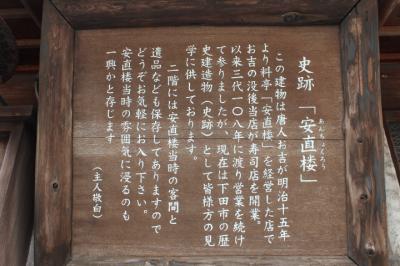 史跡 「安直楼」
あんちょくろう
この建物は唐人お吉が明治十五年
より料亭「安直楼」を経営した店で
お吉の没後当店が寿司店を開業。
以来三代一〇八年に渡り営業を続け
て参りましたが、現在は下田市の歴
史建造物（史跡）として皆様方の見
学に供しております。
二階には安直楼当時の客間と
遺品なども保存してありますので
どうぞお気軽にお入り下さい。
安直楼当時の雰囲気に浸るのも
一興かと存じます
（主人敬白）